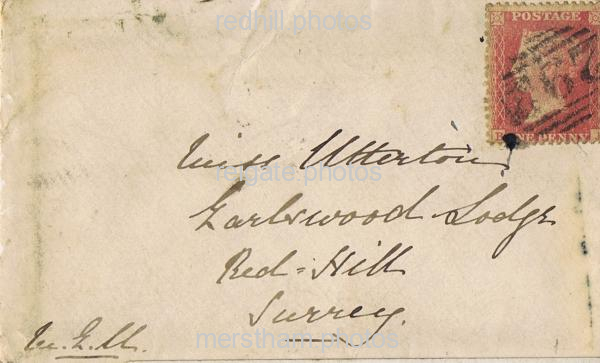 redhill photos
POSTAGE
ONE PENNY
Miss Utterton
reigate photos
Earlswood Lodge
Red=Hill
Surrey.
merstham photos